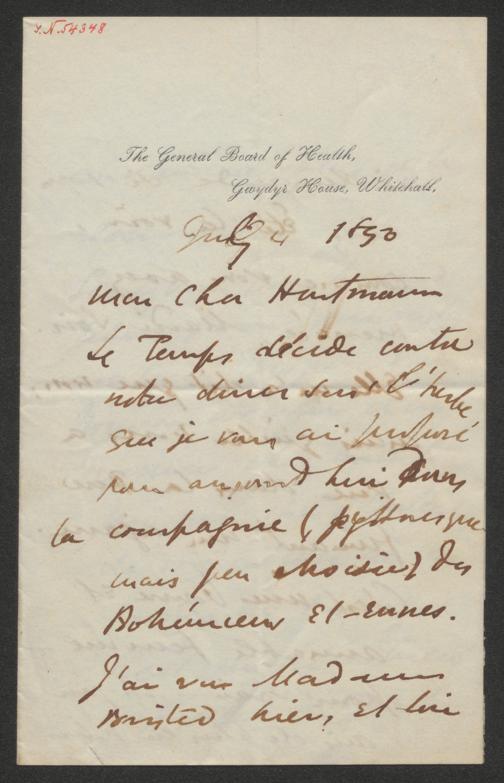 I.N. 54348
The General Board of Health,
Gwydyr House, Whitehall,
July 4 1850
Mon Cher Hartmann
Le Temps décide contre
notre diner sur l'herbe
que je vous ai proposé
pour aujourd'hui dans
la compagnie (pyttoresque
mais peu choisie) des
Bohémiens et -ennes.
J'ai vu Madame
Bristed hier, et lui